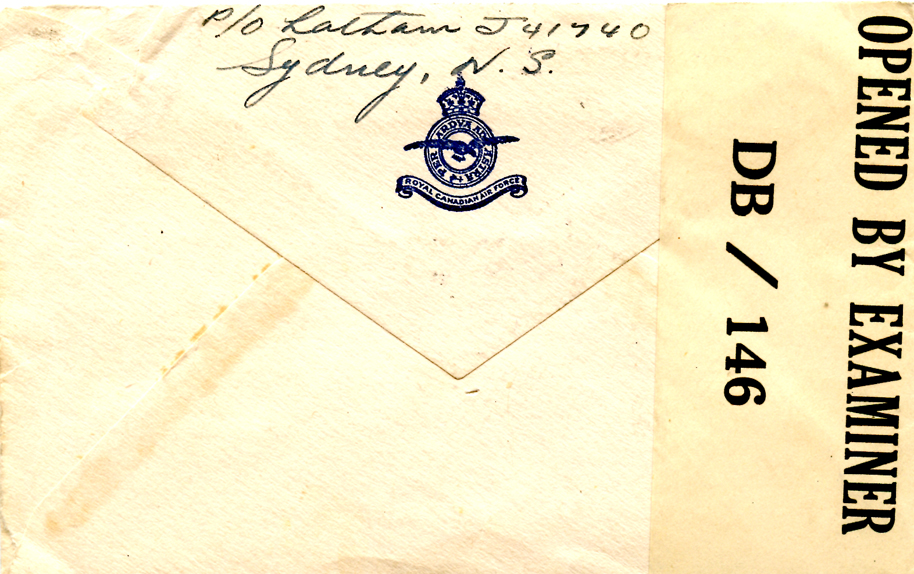 P/O Latham J41740
Sydney, N. S.
PER ARDVA AD ASTRA
ROYAL CANADIAN AIR FORCE
OPENED BY EXAMINER
DB / 146